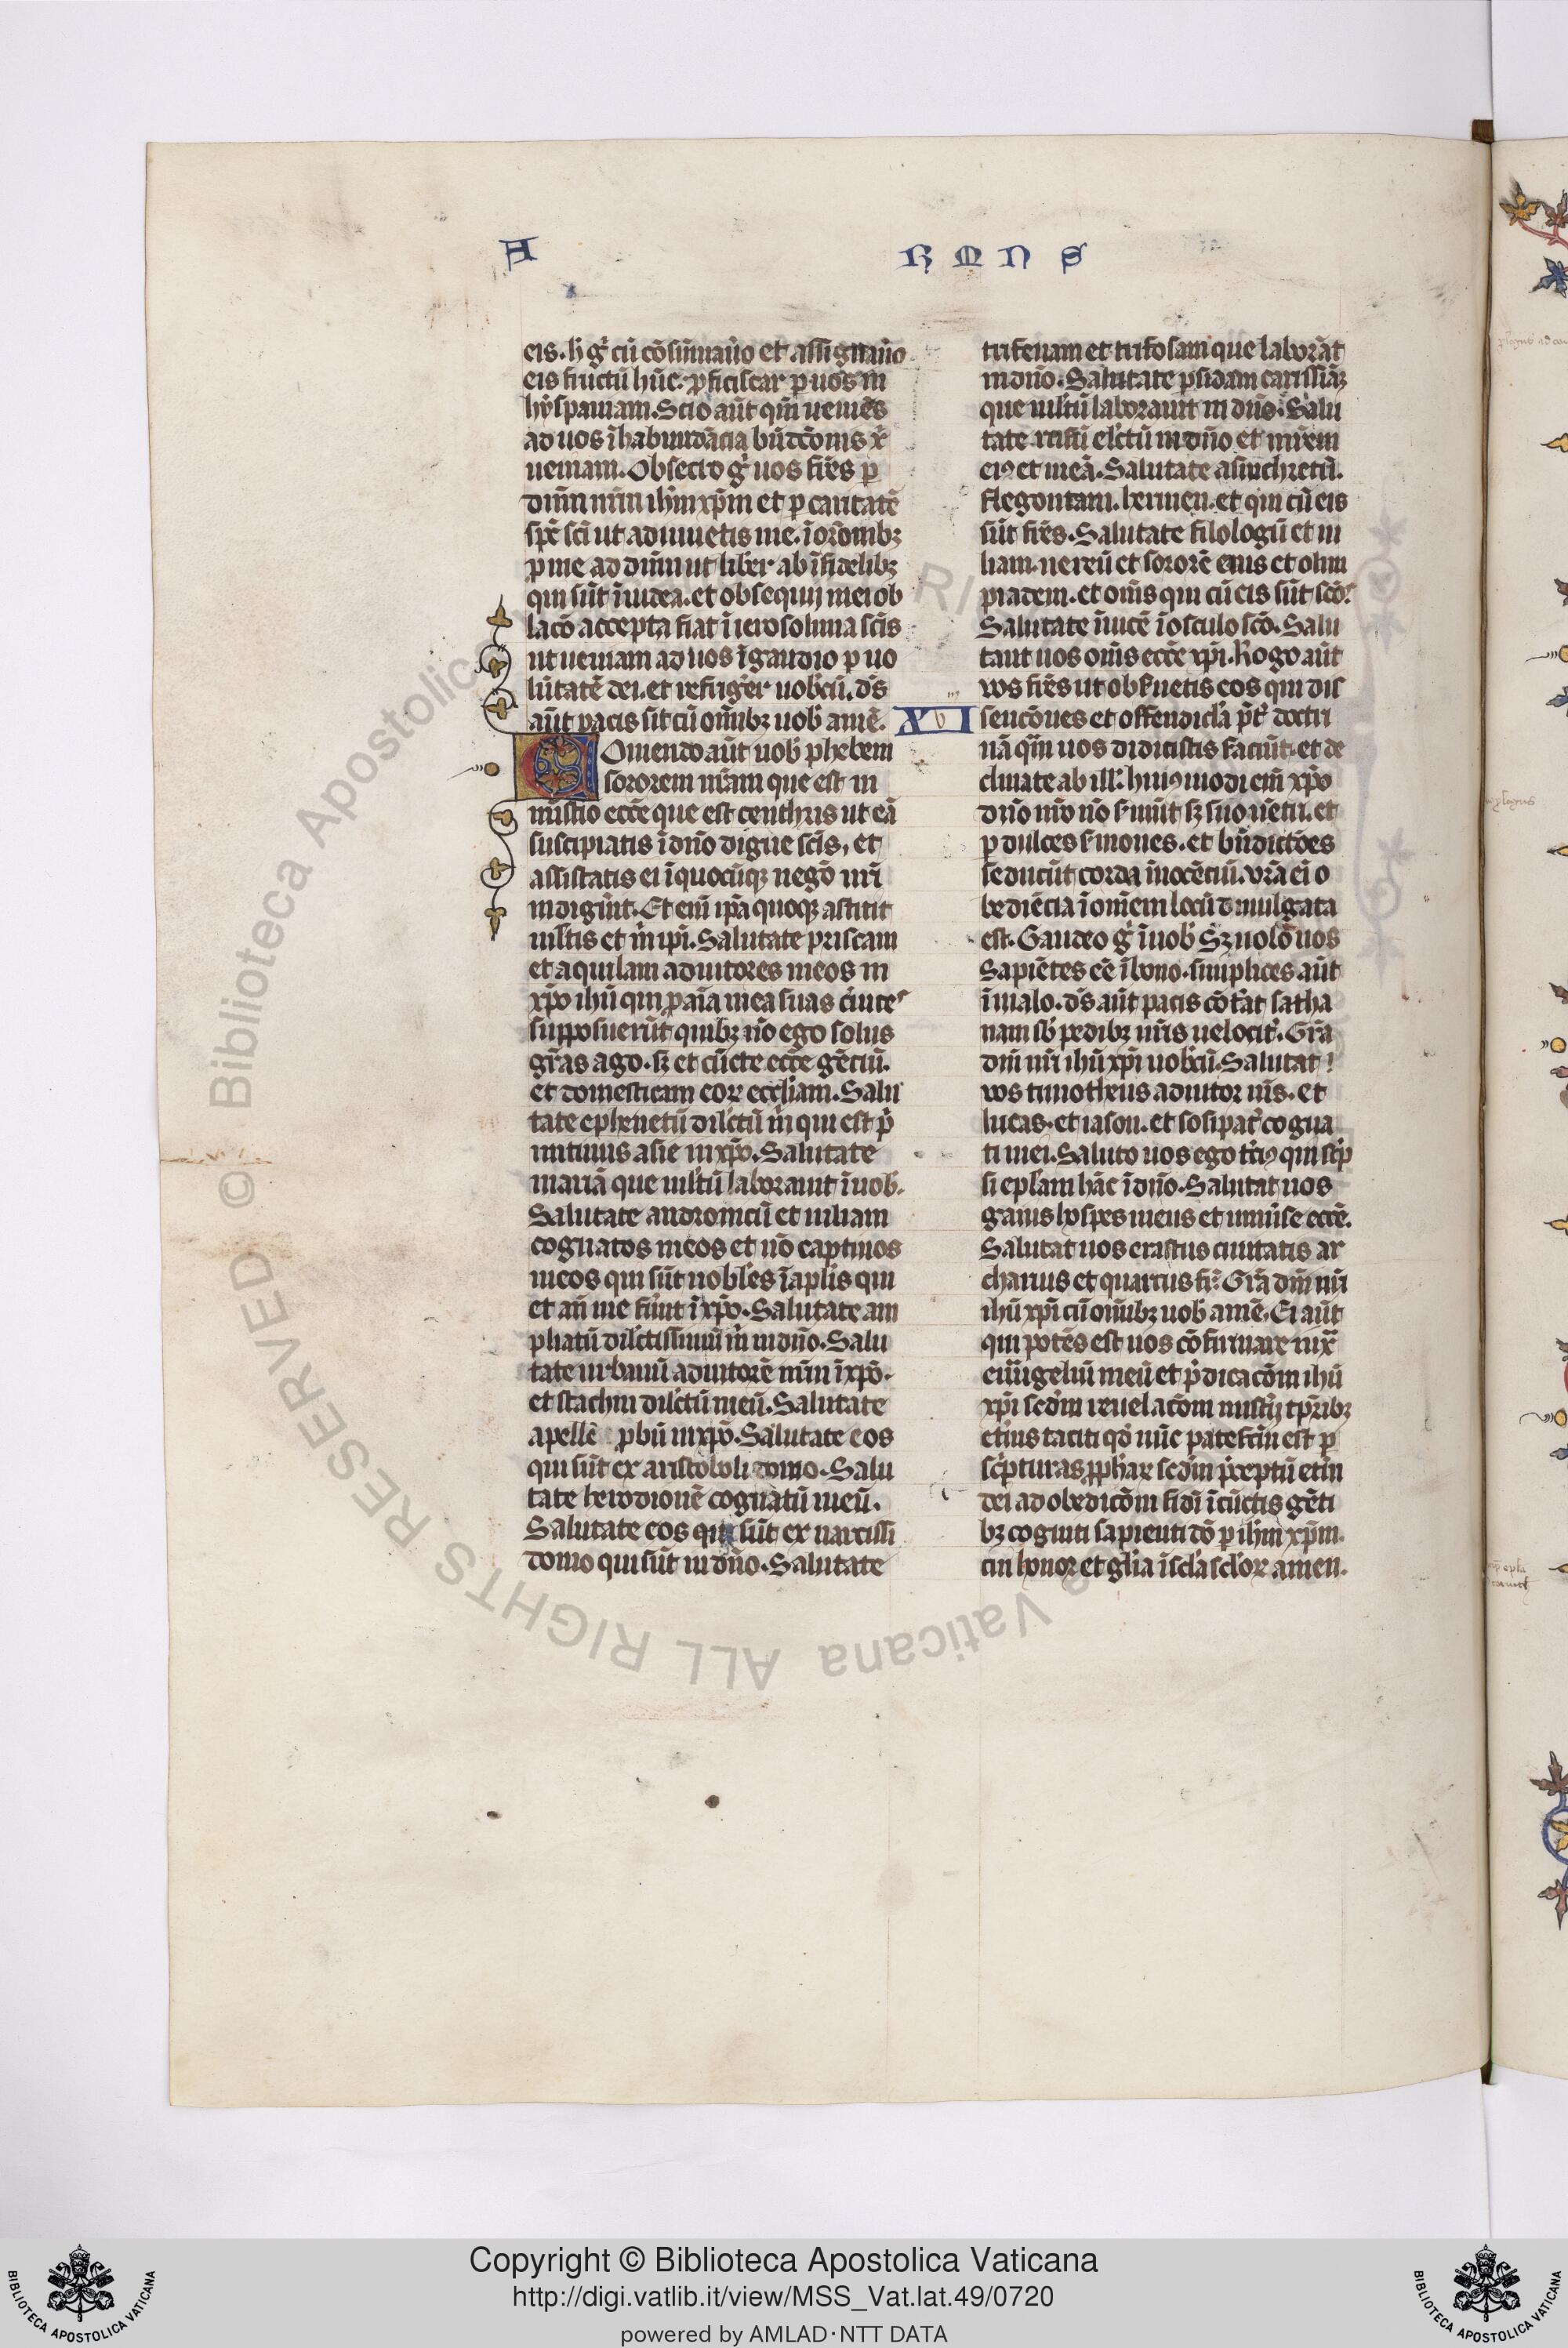 A
R M N S
eis. h̄ gͥ cū cōsūmaūo et assignaūo
eis fructū hūc. ꝓficiscar p uos in
hyspaniam. Scio aūt qm̄ ueniēs
ad uos ī habundācia bn̄dcōnis x̄
ueniam. Obsecro gͥ uos frēs p
dnm̄ nrm̄ ihm̄ xp̄m et p caritatē
spc̄ sci ut adiuuetis me. ī orōnibꝫ
p me ad dnm̄ ut liber ab īfidelibꝫ
qui sūt ī iudea. et obsequij mei ob
lacō accepta fiat ī ierosolima scīs
ut ueniam ad uos ī gaudio p uo
lūtatē dei. et refriger uobcū. ds̄
aūt pacis sit cū om̄ibꝫ uob amē.
XVI
Comendo aūt uob phebem
sororem nr̄am que est in
mīstio eccē que est cenchris ut eā
suscipiatis ī dn̄o digne scīs, et
assistatis ei ī quocūqꝫ negō ur̄i
indiginͭ. Et enī ip̄a quoqꝫ astitit
ml̄tis et m̄ ipī. Salutate priscam
et aquilam adiutores meos in
xp̄o ihū qui ꝓ aīa mea suas ceruice
supposuerūt quibꝫ nō ego solus
grās ago. sꝫ et cūcte eccē gēciū.
et domesticam eoꝝ eccl̄iam. Salu
tate ephenetū dilc̄tū m̄ qui est p̄
mitiuus asie in xp̄o. Salutate
mariā que ml̄tū laborauit ī uob.
Salutate andronicū et iuliam
cognatos meos et nō captiuos
meos qui sūt nobles ī aplis qui
et an̄ me fūnt ī xp̄o. Salutate am
pliatū dilc̄tissimū m̄ in dn̄o. Salu
tate urbanū adiutorē nrm̄ ī xp̄o.
et stachin dilc̄tū meū. Salutate
apellē pbū in xp̄o. Salutate eos
qui sūt ex aristoboli domo. Salu
tate herodionē cognatū meū.
Salutate eos qui sūt ex narcissi
domo qui sūt in dn̄o. Salutate
trifenam et trifosam que laborāt
in dn̄o. Salutate psidam carissiāꝫ
que ml̄tū laborauit in dn̄o. Salu
tate rufū elc̄tū in dn̄o et mr̄em
eiꝰ et meā. Salutate asinchretū.
flegontam. hermen. et qui cū eis
sūt frēs. Salutate filologū et iu
liam. nereū et sororē eius et olim
piadem. et om̄s qui cū eis sūt scōs
Salutate īuicē ī osculo scō. Salu
tant uos om̄s eccē xp̄i. Rogo aūt
uos frēs ut obsͥuetis eos qui dis
sencōnes et offendicla p̄tͥ doctri
nā qm̄ uos didicistis faciūt. et de
clinate ab ill. huiꝰmodi enī xp̄o
dn̄o nr̄o nō sͥuiūt sꝫ suo uentͥ. et
p dulces sͥmones. et bn̄dictōes
seducūt corda īnocētiū. ur̄a eī o
bediēcia ī om̄em locū diuulgata
est. Gaudeo gͥ ī uob Sꝫ uolo uos
sapiētes eē ī bono. simplices aūt
ī malo. ds̄ aūt pacis cōtͥat satha
nam sb pedibꝫ ur̄is uelocitͥ. Grā
dnī nrī ihū xp̄i uobcū. Salutat
uos timotheus adiutor m̄s. et
lucas. et iason. et sosipatͥ cogna
ti mei. Saluto uos ego tͥciꝰ qui scp̄
si ep̄lam hāc ī dn̄o. Salutat uos
gaius hospes meus et uniūse eccē.
Salutat uos erastus ciuitatis ar
charius et quartus fr̄. Grā dnī nrī
ihū xp̄i cū om̄ibꝫ uob amē. Ei aūt
qui potēs est uos cōfirmare iux̄
euūgeliū meū et p̄dicacōm ihū
xp̄i scdm̄ reuelacōm mistij tp̄ribꝫ
etnis taciti qd̄ nūc patefcm̄ est p
sc̄pturas ꝓphͣꝝ scdm̄ p̄ceptū etn̄i
dei ad obedicōm fidī ī cūctis gēti
bꝫ cogniti sapienti dō p ihm̄ xp̄m
cui honor et glīa ī scl̄a scl̄oꝝ amen.
Copyright © Biblioteca Apostolica Vaticana
http://digi.vatlib.it/view/MSS_Vat.lat.49/0720
powered by AMLAD·NTT DATA
BIBLIOTECA APOSTOLICA VATICANA
BIBLIOTECA APOSTOLICA VATICANA